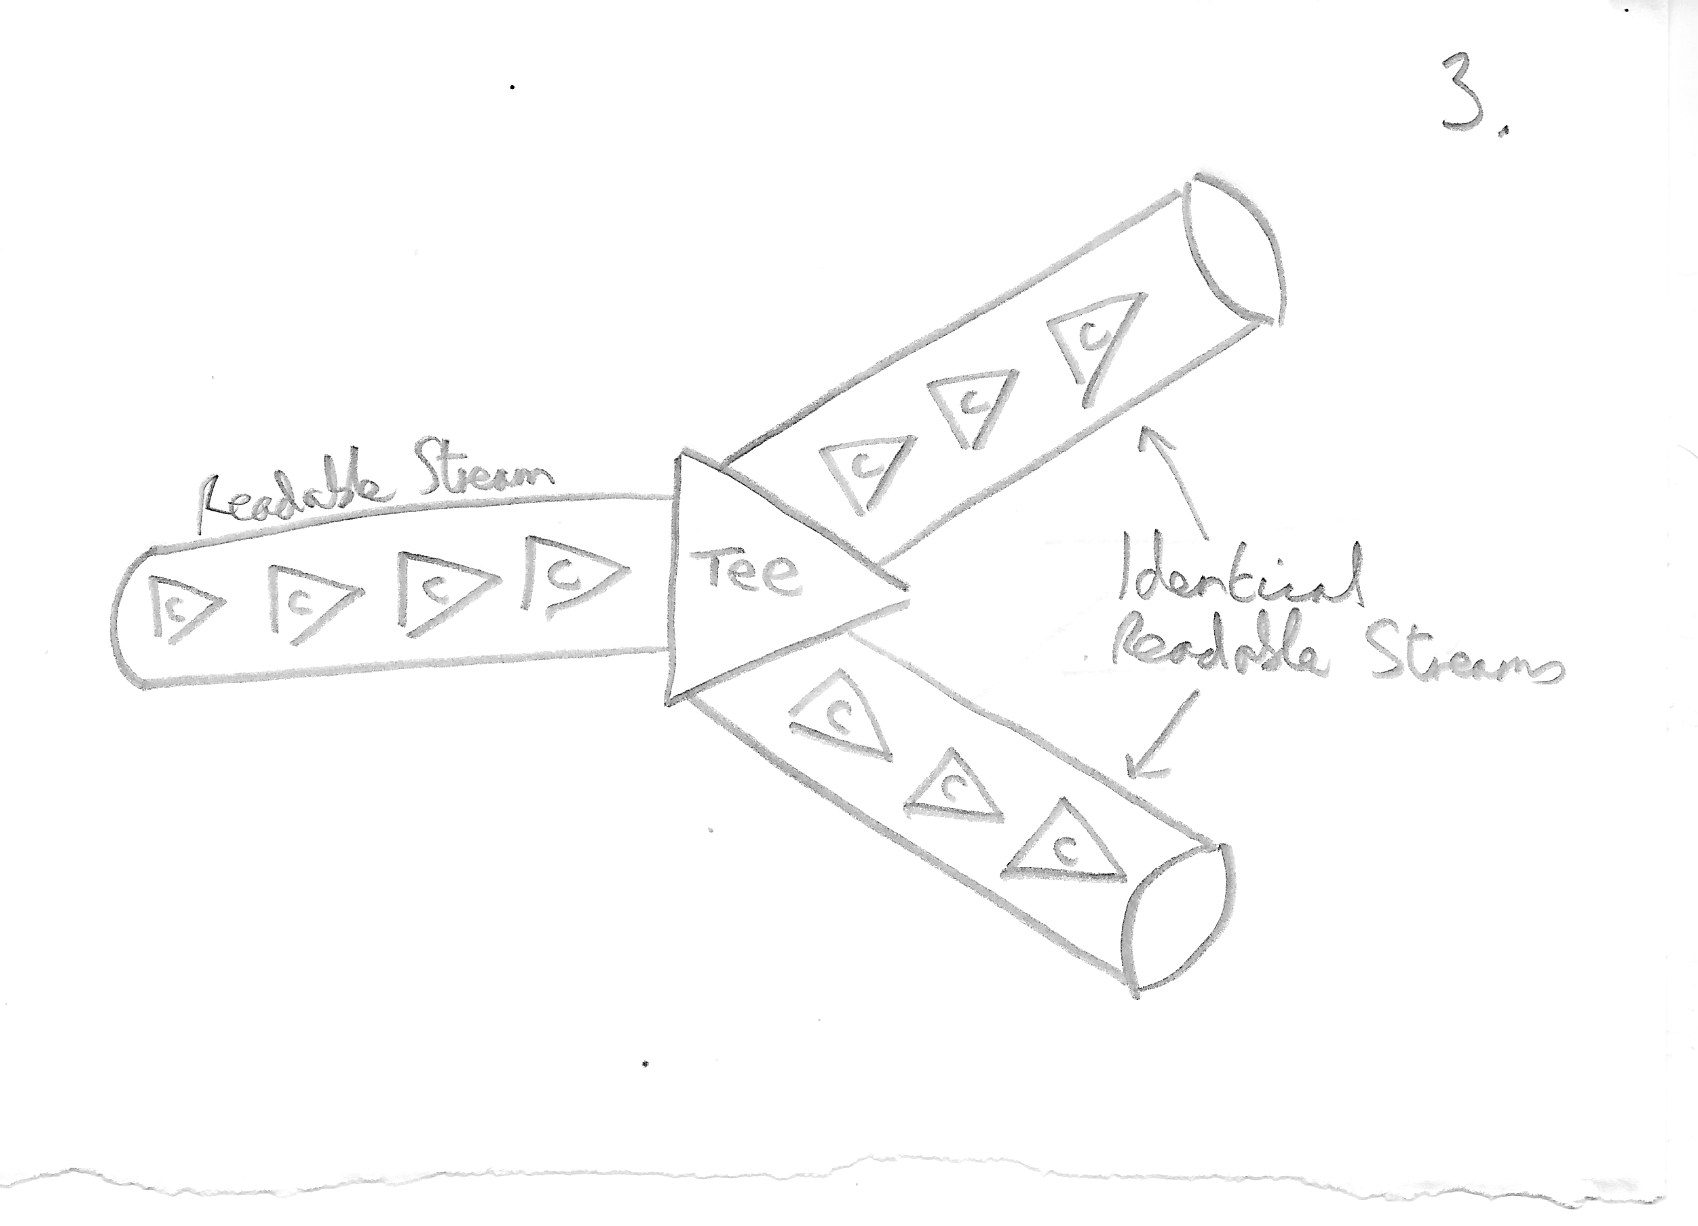 3.
Readable Stream
C C C C
Tee
C C C
Identical
Readable Streams
C C C